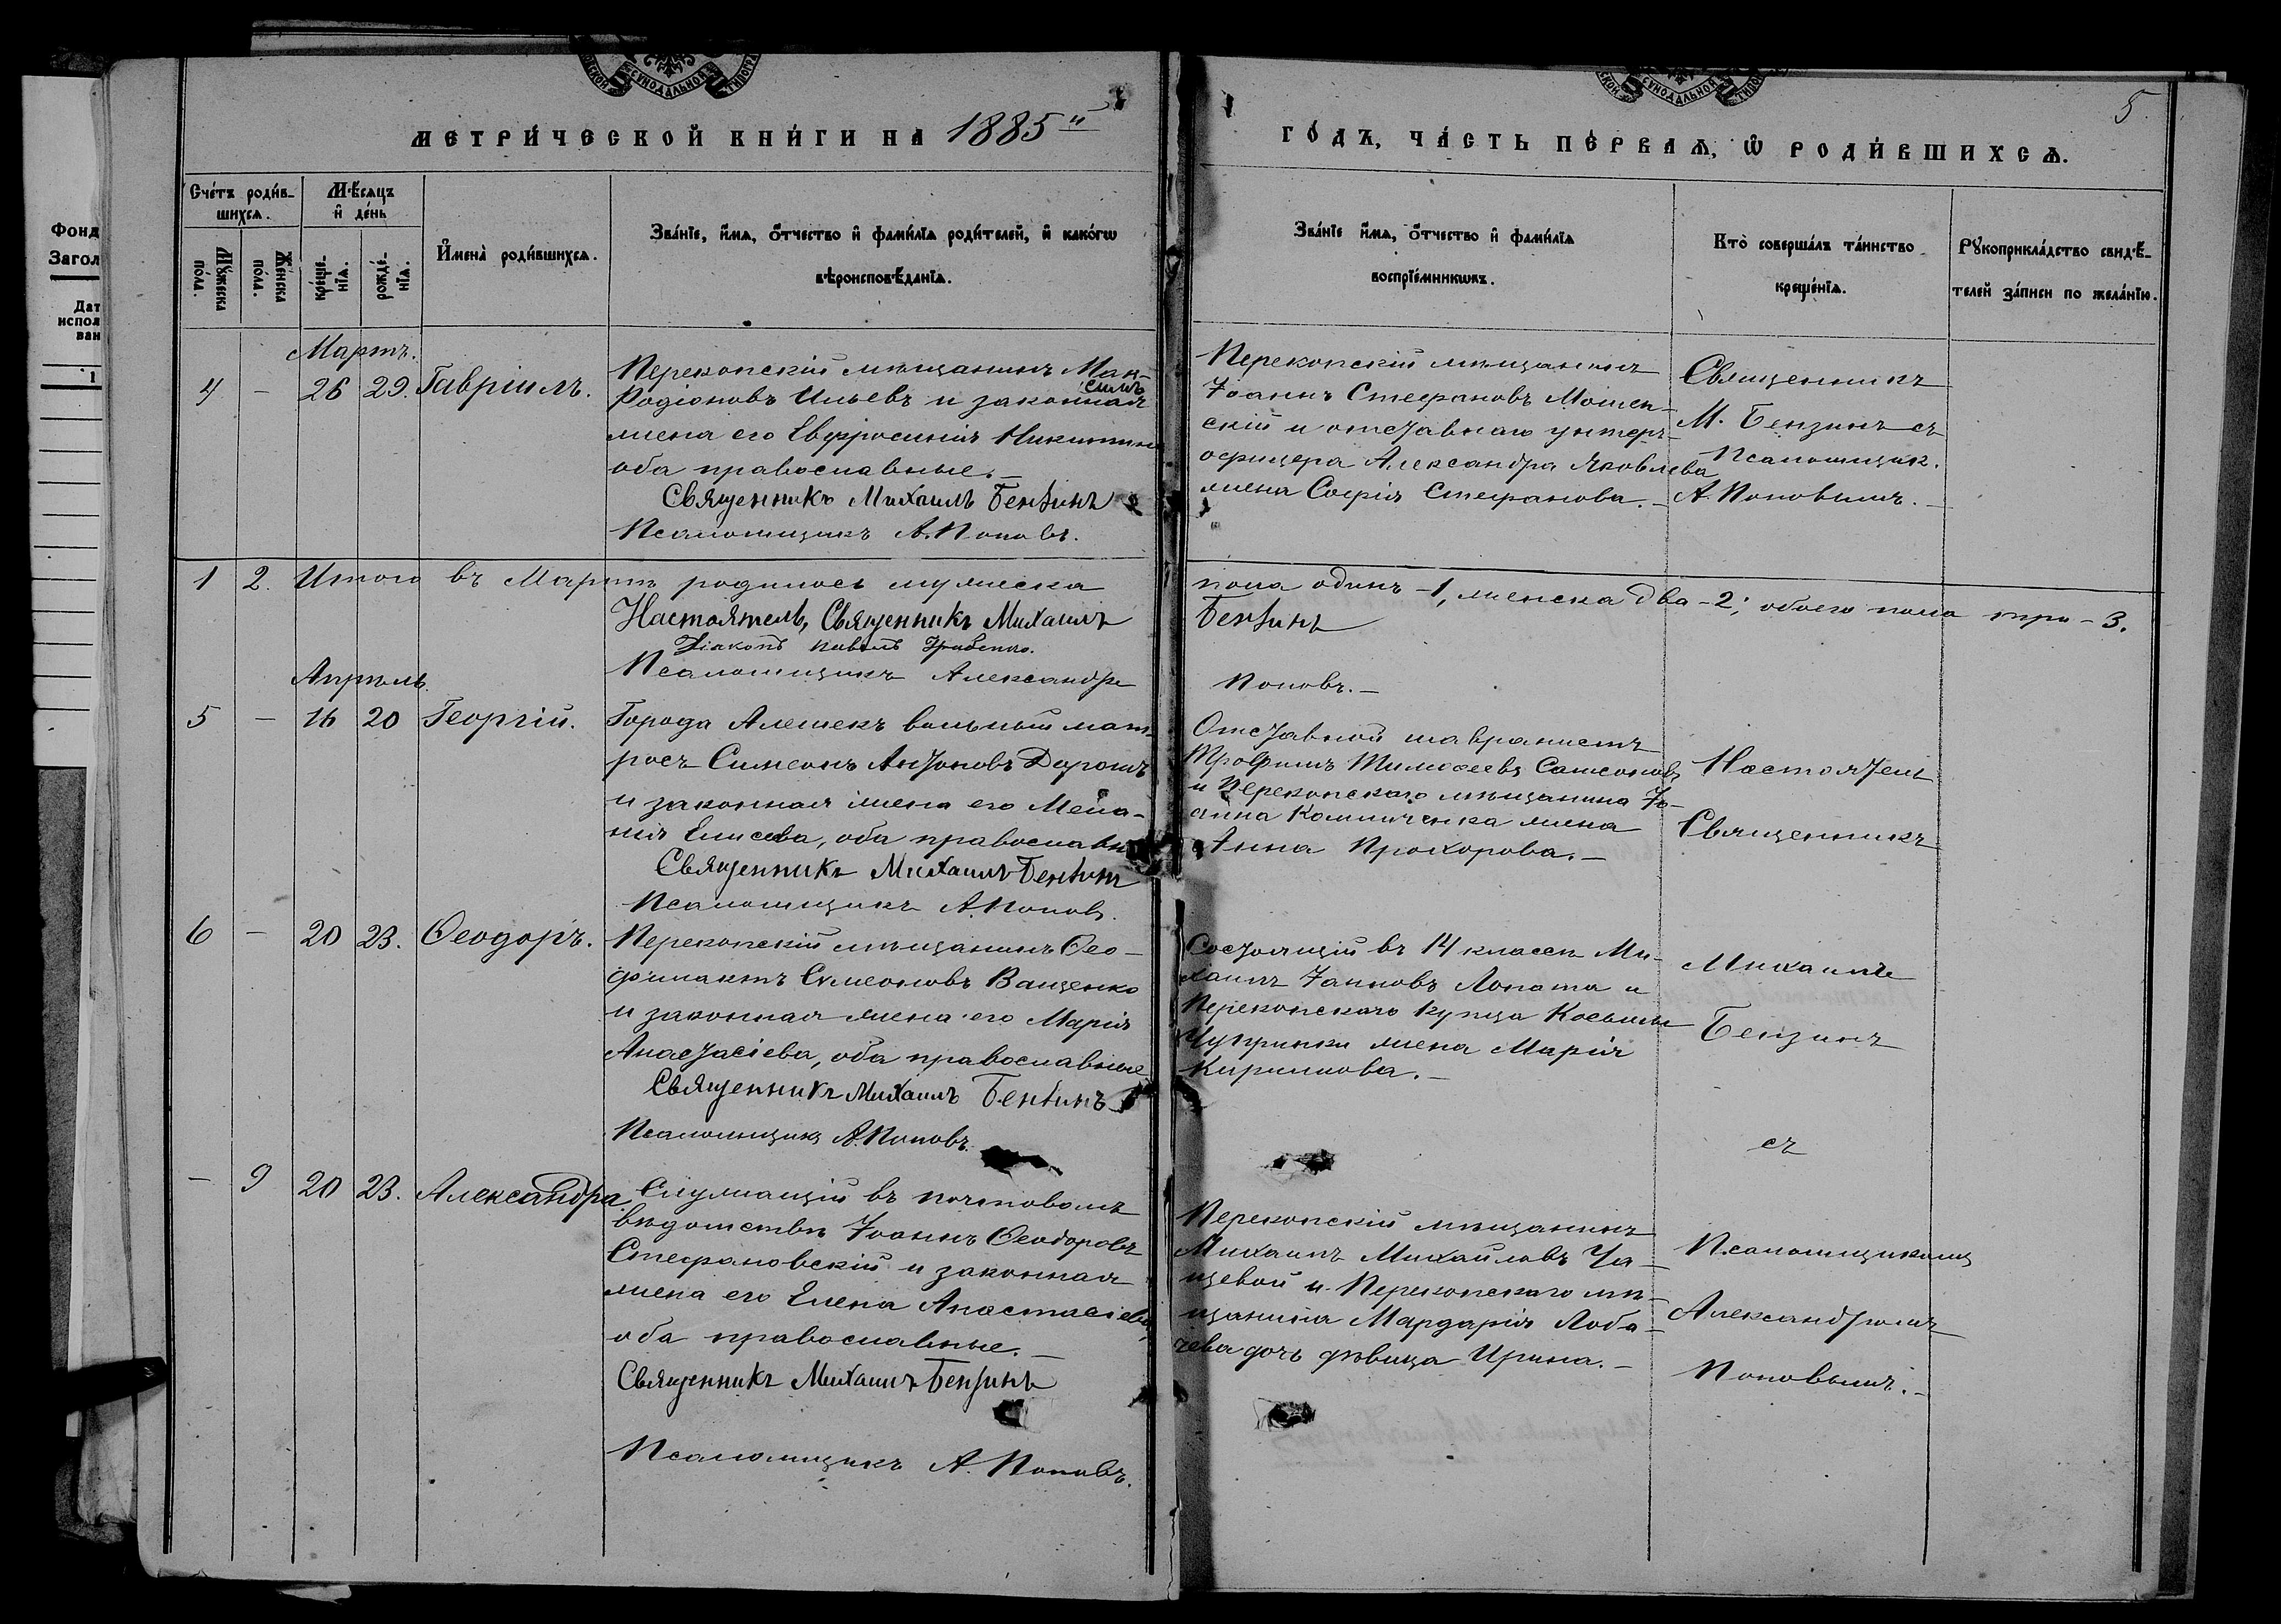 МЕТРИ́ЧЕСКОЙ КНИ́ГИ НА 1885й
ГО́ДЪ, ЧА́СТЬ ПЕ́РВАѦ, Ѡ҆ РОДИ́ВШИХСѦ.
5.
Сче́тъ роди́в-
шихсѧ.
Мѣ́сѧцъ
и҆ де́нь
Мꙋ́жеска
по́ла.
Же́нска
по́ла.
кре́ще-
нїѧ.
рожде́-
нїѧ.
И҆мена̀ роди́вшихсѧ.
Зва́нїе, и҆́мѧ, ѻ҆́тчество и҆ фами́лїѧ роди́телей, и҆ како́гѡ
вѣроисповѣ́данїѧ.
Зва́нїе и҆́мѧ, ѻ҆́тчество и҆ фами́лїѧ
воспрїе́мникѡвъ.
Кто̀ соверша́лъ та́инство
креще́нїѧ.
Рꙋкоприкла́дство свидѣ́-
телей за́писи по жела́нїю.
Фонд
Загол
Дат
испол
ван
1
Мартъ.
4 - 26 29. Гавріилъ.
Перекопскій мѣщанинъ Мак-
симъ
Родіоновъ Ильевъ и законная
жена его Евфросинія Никитина
оба православные.
Священникъ Михаилъ Бензинъ
Псаломщикъ А. Поповъ.
Перекопскій мѣщанинъ
Іоаннъ Стефановъ Мошен-
скій и отставнаго унтеръ-
офицера Александра Яковлева
жена Софія Стефанова.
Священникъ
М. Бензинъ съ
Псаломщик.
А. Поповымъ.
1 2. Итого въ Мартѣ родилось мужеска
пола одинъ - 1, женска два - 2; обоего пола три - 3.
Настоятель, Священникъ Михаилъ
Бензинъ
Діаконъ Павелъ
Псаломщикъ Александръ
Поповъ.
Апрѣль.
5 - 16 20 Георгій.
Города Алешекъ вольный мат-
росъ Симеонъ Антоновъ
и законная жена его Мела-
нія Елисева, оба православн
Священникъ Михаилъ Бензинъ
Псаломщикъ А. Поповъ.
Отставной
Трофимъ Тимофеевъ Самсоновъ
и Перекопскаго мѣщанина Іо-
анна жена
Анна Прохорова.
Настоятель
Священникъ
6 - 20 23. Ѳеодоръ.
Перекопскій мѣщанинъ Ѳео-
филактъ Симеоновъ Ващенко
и законная жена его Марія
Анастасіева, оба православные
Священникъ Михаилъ Бензинъ
Псаломщикъ А. Поповъ.
Состоящій въ 14 классѣ Ми-
хаилъ Іанновъ Лопата и
Перекопскаго купца Косьмы
Чупринки жена Марія
Кириллова.
Михаилъ
Бензинъ
съ
- 9 20 23. Александра
Служащій въ почтовомъ
вѣдомствѣ Іоаннъ Ѳеодоровъ
Стефановскій и законная
жена его Елена Анастасіева,
оба православные.
Священникъ Михаилъ Бензинъ
Псаломщикъ А. Поповъ.
Перекопскій мѣщанинъ
Михаилъ Михайловъ Ча-
щевой и Перекопскаго мѣ-
щанина Мардарія Лоба-
чева дочь дѣвица Ирина.
Псаломщикомъ
Александромъ
Поповымъ.